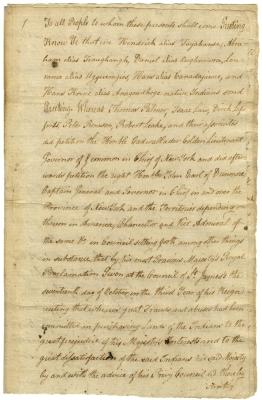 To all People to whom these presents shall come Greeting
Know Ye that we Hendrick alias Tayahansa, Abra-
ham alias Tianghaugh, Daniel alias
alias Hans alias Canadagaure, and
Hans Krine alias Anagawdhoge native Indians send
Greeting. Whereas Thomas Palmer, Isaac Low, Derick Lef-
ferts, Peter Remsen, Robert Leake, and their associates
did petition the Honble Cadwallader Colden Lieutenant
Governor & Common in Chief of New York and did after-
wards petition the right Honble John Earl of Dunmore
Captain General and Governor in Chief in and over the
Province of New York and the Territories depending
thereon in America, Chancellor and Vice Admiral of
the same &c in Council setting forth among other things
in substance, that by his most Gracious Majesty's Royal
Proclamation Given at the Council of St. James's the
seventeenth day of October in the third Year of his Reign
reciting that whereas great Frauds and abuses had been
committed in purchasing Lands of the Indians to the
great prejudice of his Majesty's Interests and to the
great dissatisfaction of the said Indians his said Majesty
by and with the advice of his Privy Council did thereby